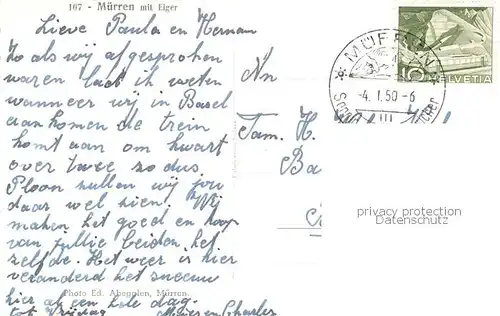 107 - Mürren mit Eiger
Lieve Paula en Herman
Zo als wij afgesproken
waren laat ik weten
wanneer wij in Basel
aan komen de trein
komt aan om kwart
over twee zo dus
Ploon zullen wij jou
daar wel zien. Wij
maken het goed en hoop
van jullie beiden het
zelfde. Het weer is hier
veranderd het sneeuw
hier al een hele dag.
tot Vrijdag
Photo Ed. Abegglen, Mürren.
An
Fam. H.
Ba
MÜRREN
-4. I. 50 -6
III
HELVETIA
privacy protection
Datenschutz